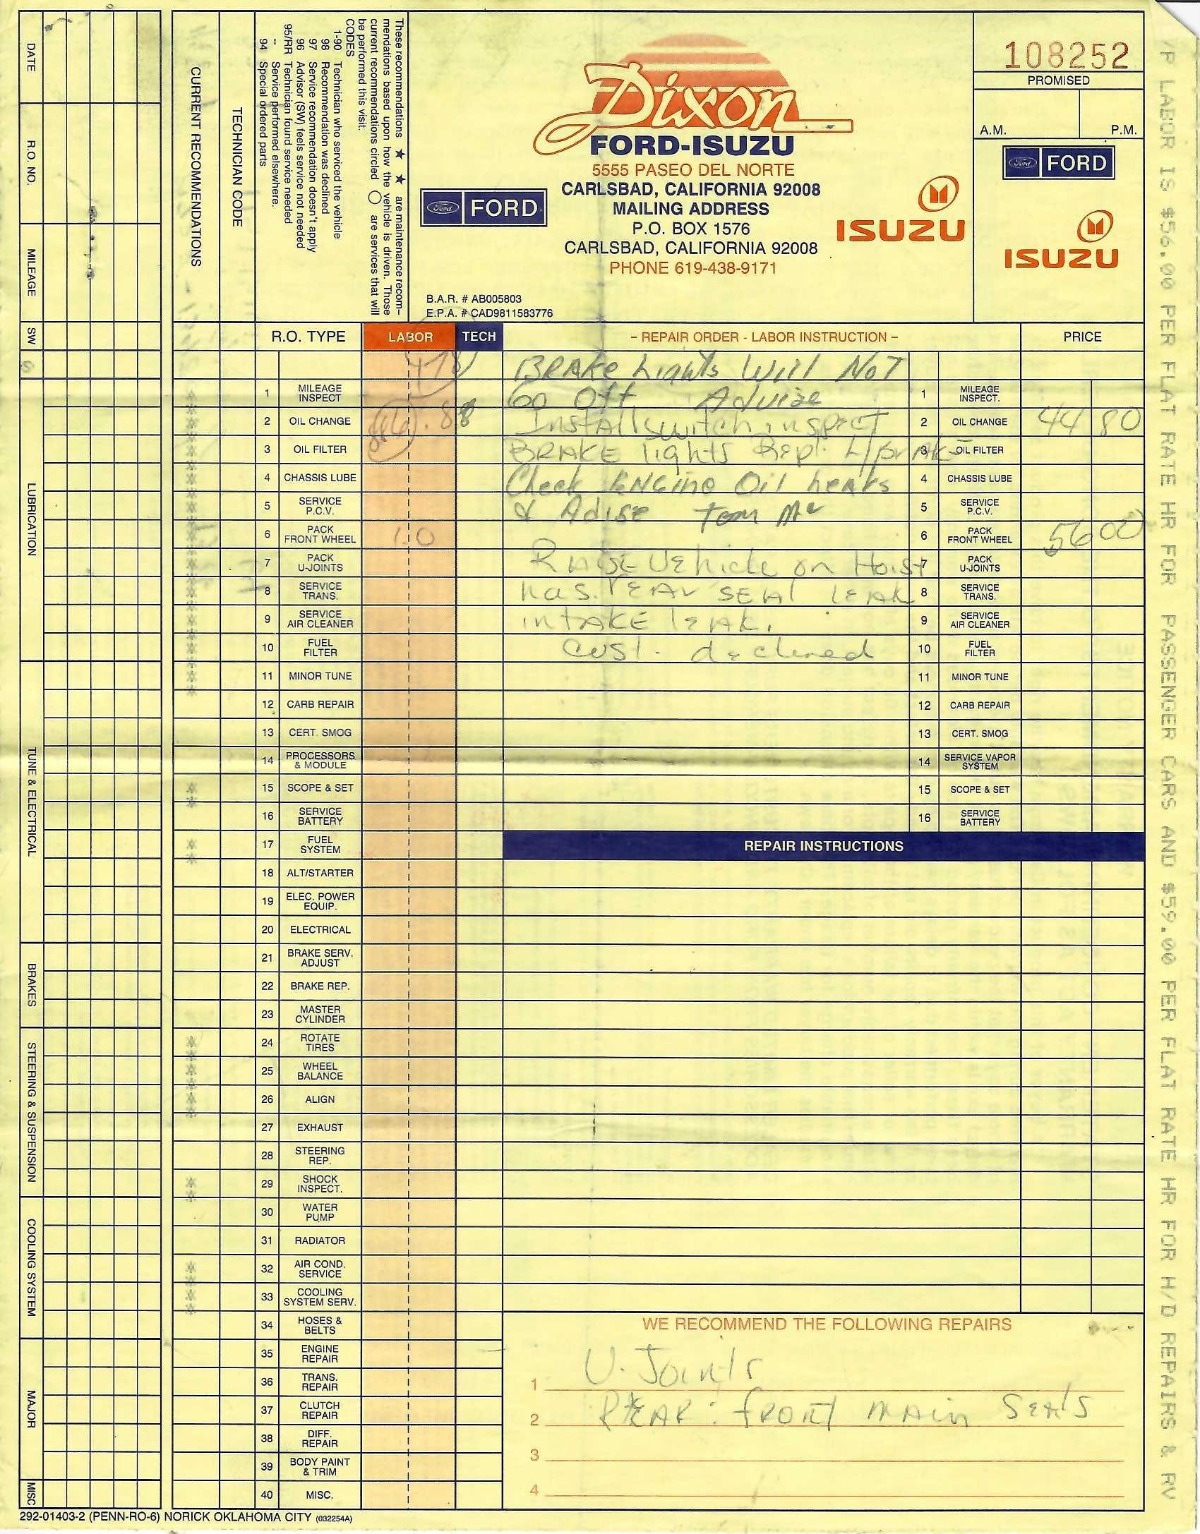 108252
PROMISED
A.M. P.M.
Ford FORD
ISUZU
Dixon
FORD-ISUZU
5555 PASEO DEL NORTE
CARLSBAD, CALIFORNIA 92008
MAILING ADDRESS
P.O. BOX 1576
CARLSBAD, CALIFORNIA 92008
PHONE 619-438-9171
Ford FORD
ISUZU
B.A.R. # AB005803
E.P.A. # CAD9811583776
These recommendations ★ ★ are maintenance recom-
mendations based upon how the vehicle is driven. Those
current recommendations circled ○ are services that will
be performed this visit.
CODES
1-90 Technician who serviced the vehicle
98 Recommendation was declined
97 Service recommendation doesn't apply
96 Advisor (SW) feels service not needed
95/RR Technician found service needed
- Service performed elsewhere.
94 Special ordered parts
TECHNICIAN CODE
CURRENT RECOMMENDATIONS
DATE
R.O. NO.
MILEAGE
SW
LUBRICATION
TUNE & ELECTRICAL
BRAKES
STEERING & SUSPENSION
COOLING SYSTEM
MAJOR
MISC
R.O. TYPE LABOR TECH – REPAIR ORDER - LABOR INSTRUCTION – PRICE
BRAKE Lights Will Not
1 MILEAGE INSPECT Go Off Advize 1 MILEAGE INSPECT.
2 OIL CHANGE Install switch, inspect 2 OIL CHANGE 44 80
3 OIL FILTER BRAKE lights Repl. 3 OIL FILTER
4 CHASSIS LUBE Check ENGine Oil leaks 4 CHASSIS LUBE
5 SERVICE P.C.V. & Adise 5 SERVICE P.C.V.
6 PACK FRONT WHEEL 1.0 6 PACK FRONT WHEEL 56 00
7 PACK U-JOINTS RAISE Vehicle on Hoist 7 PACK U-JOINTS
8 SERVICE TRANS. has. rEAr SEAl lEAK 8 SERVICE TRANS.
9 SERVICE AIR CLEANER intAKE lEAK. 9 SERVICE AIR CLEANER
10 FUEL FILTER cust. declined 10 FUEL FILTER
11 MINOR TUNE 11 MINOR TUNE
12 CARB REPAIR 12 CARB REPAIR
13 CERT. SMOG 13 CERT. SMOG
14 PROCESSORS & MODULE 14 SERVICE VAPOR SYSTEM
15 SCOPE & SET 15 SCOPE & SET
16 SERVICE BATTERY 16 SERVICE BATTERY
17 FUEL SYSTEM REPAIR INSTRUCTIONS
18 ALT/STARTER
19 ELEC. POWER EQUIP.
20 ELECTRICAL
21 BRAKE SERV. ADJUST
22 BRAKE REP.
23 MASTER CYLINDER
24 ROTATE TIRES
25 WHEEL BALANCE
26 ALIGN
27 EXHAUST
28 STEERING REP.
29 SHOCK INSPECT.
30 WATER PUMP
31 RADIATOR
32 AIR COND. SERVICE
33 COOLING SYSTEM SERV.
34 HOSES & BELTS
35 ENGINE REPAIR
36 TRANS. REPAIR
37 CLUTCH REPAIR
38 DIFF. REPAIR
39 BODY PAINT & TRIM
40 MISC.
WE RECOMMEND THE FOLLOWING REPAIRS
1 U-Joints
2 REAR : front main Seals
3
4
292-01403-2 (PENN-RO-6) NORICK OKLAHOMA CITY (032254A)
LABOR IS $56.00 PER FLAT RATE HR FOR PASSENGER CARS AND $59.00 PER FLAT RATE HR FOR H/D REPAIRS & RV